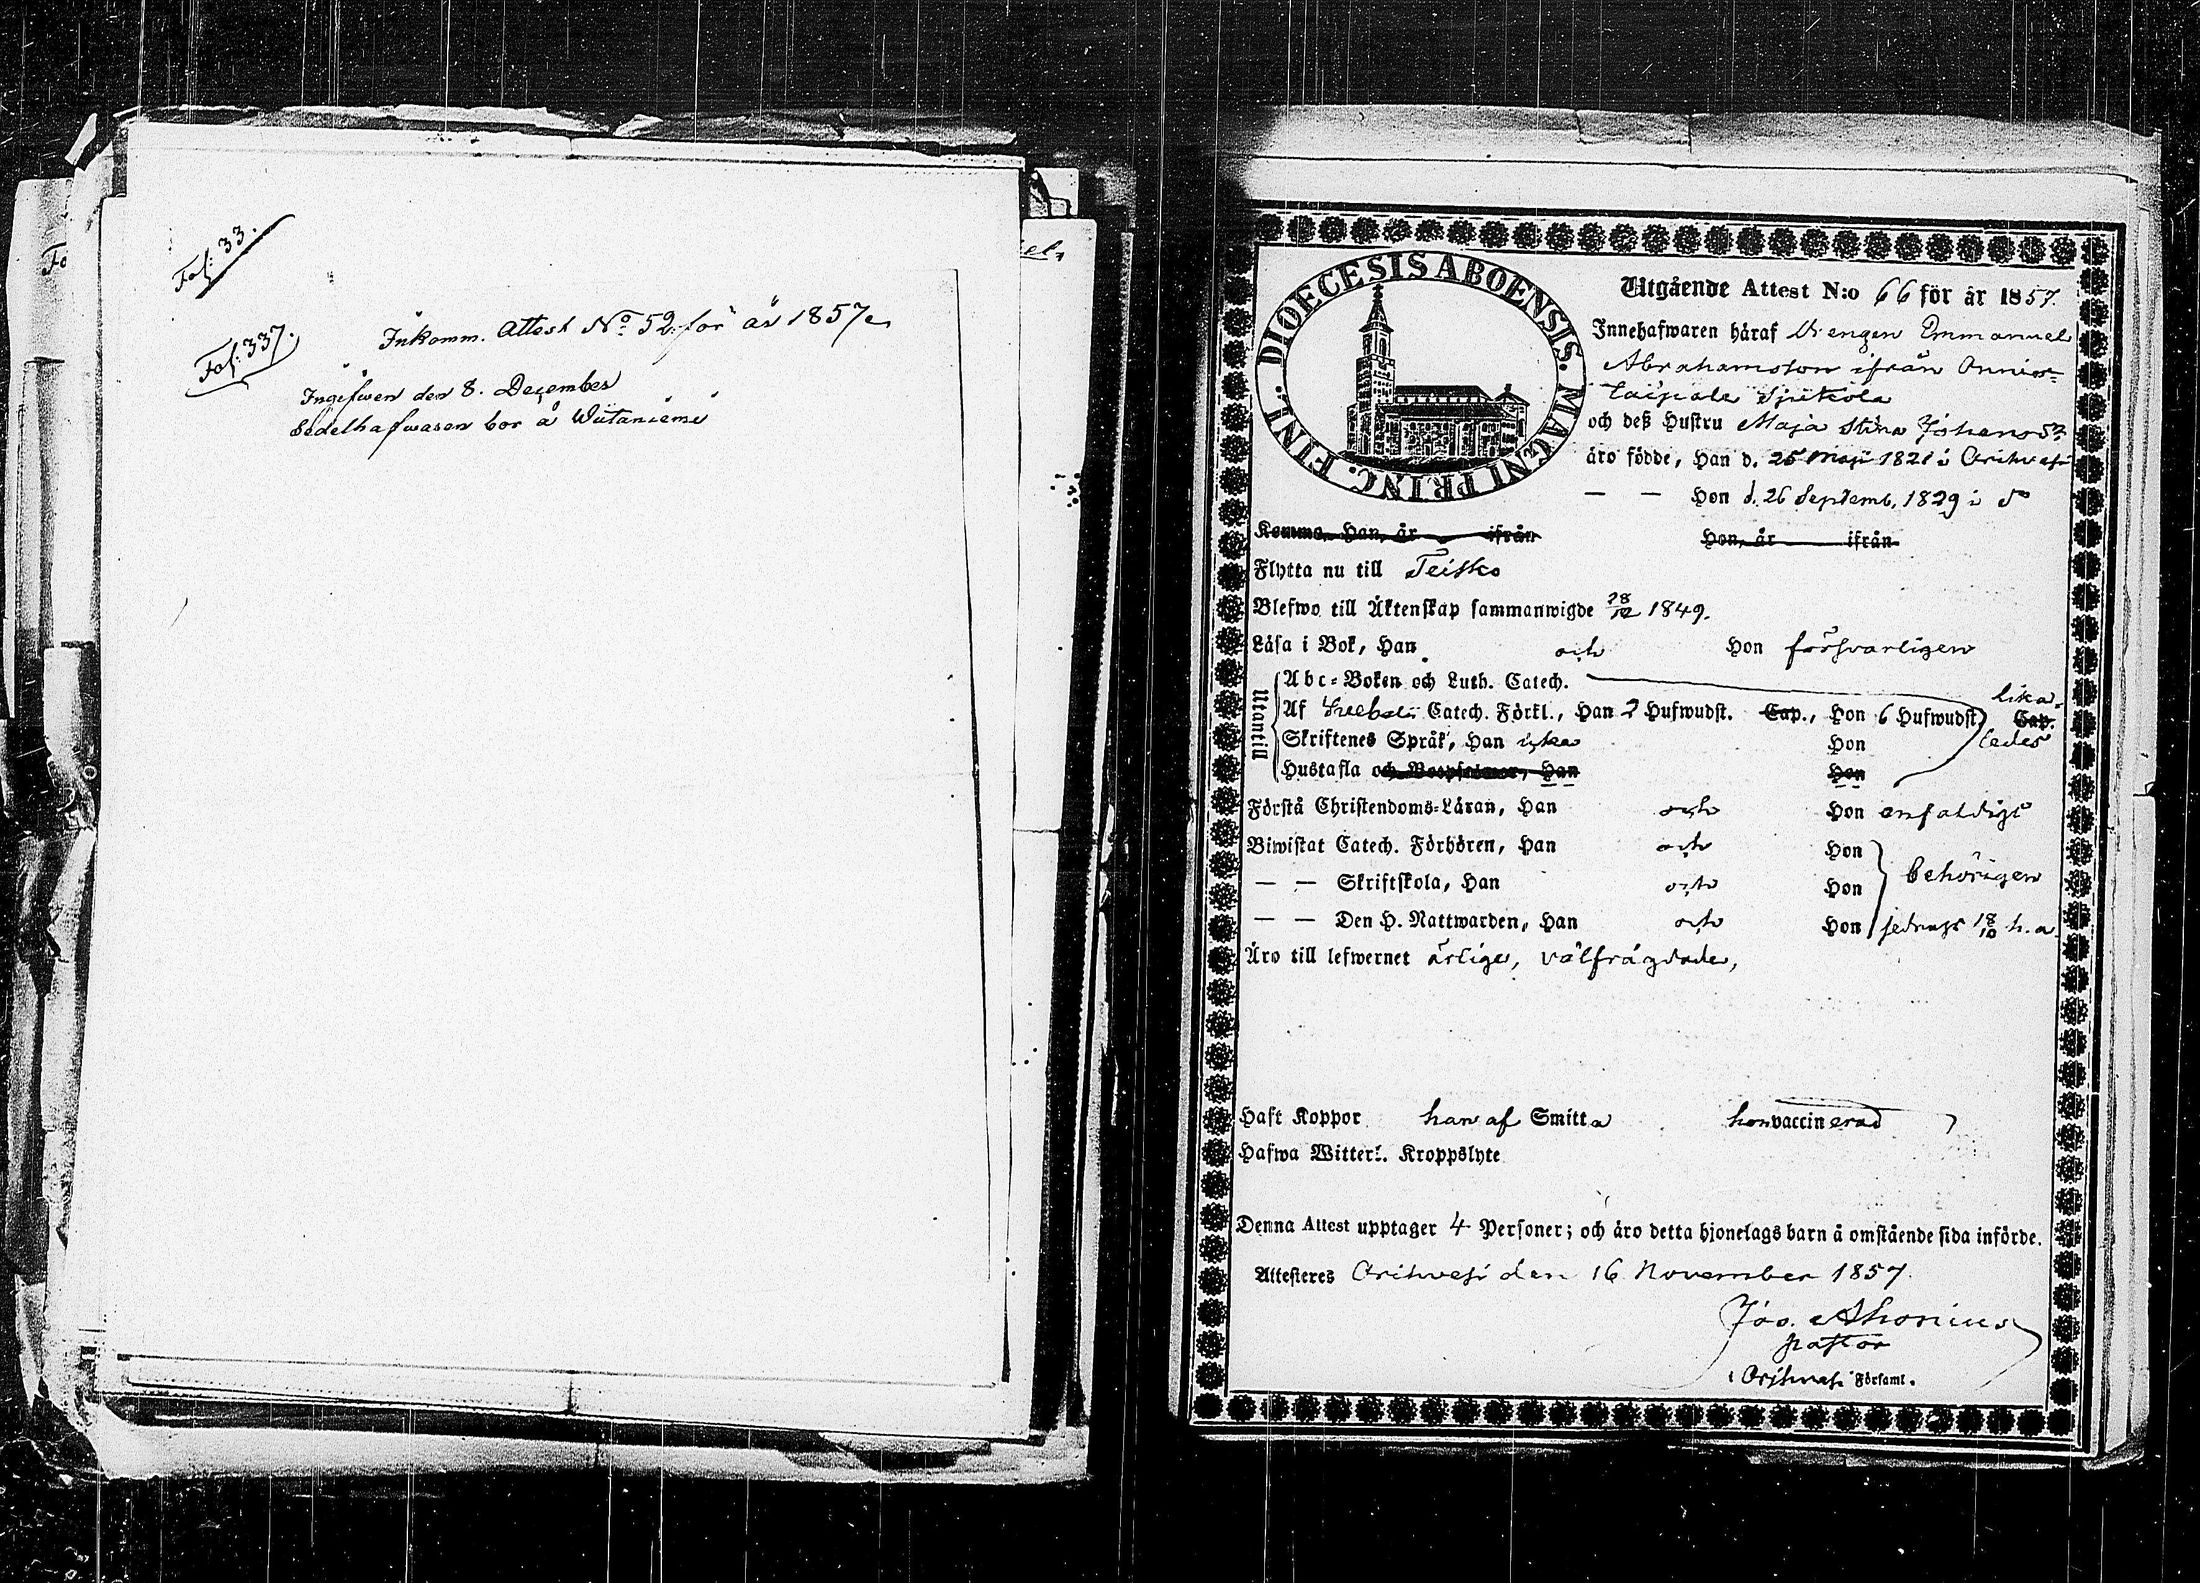 Fol. 33.
Fol. 337.
Inkomm. Attest No 52 för år 1857
Ingifwen den 8. December
Sedelhafwaren bor å Wiitaniemi
DIOECESIS ABOENSIS. MAGNI PRINC. FINL.
Utgående Attest N:o 66 för år 1857.
Innehafwaren häraf Drengen Emmanuel
Abrahamsson ifrån Onnis-
taipale
och deß Hustru Maja Stina Johansdr
äro födde, Han d. 25 Maji 1821 i Orihvesi
— — Hon d. 26 Septemb. 1829 i do
Komma, Han, år ifrån Hon, år ifrån
Flytta nu till Teisko
Blefwo till Äktenskap sammanwigde 28/12 1849.
Läsa i Bok, Han och Hon försvarligen
Utantill
Abc-Boken och Luth. Catech.
Af Svebeli Catech. Förkl., Han 2 Hufwudst. Cap., Hon 6 Hufwudst. Cap. lika-
Skriftenes Språk, Han icke Hon ledes
Hustafla och Botpsalmer, Han Hon
Förstå Christendoms-Läran, Han och Hon enfaldigt
Biwistat Catech. Förhören, Han och Hon
— — Skriftskola, Han och Hon behörigen
— — Den H. Nattwarden, Han och Hon sednast 18/10 h. a.
Äro till lefwernet ärliga, välfrägdade,
Haft Koppor han af Smitta hon vaccinerad
Hafwa Witterl. Kroppslyte
Denna Attest upptager 4 Personer; och äro detta hjonelags barn å omstående sida införde.
Attesteres Orihvesi den 16 November 1857.
Jos. Ahonius
pastor
i Orihvesi Församl.